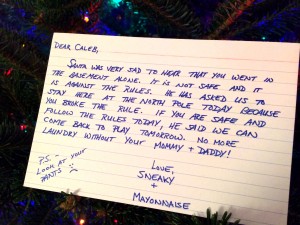 DEAR CALEB,
SANTA WAS VERY SAD TO HEAR THAT YOU WENT IN
THE BASEMENT ALONE. IT IS NOT SAFE AND IT
IS AGAINST THE RULES. HE HAS ASKED US TO
STAY HERE AT THE NORTH POLE TODAY BECAUSE
YOU BROKE THE RULE. IF YOU ARE SAFE AND
FOLLOW THE RULES TODAY, HE SAID WE CAN
COME BACK TO PLAY TOMORROW. NO MORE
LAUNDRY WITHOUT YOUR MOMMY + DADDY!
LOVE,
SNEAKY
+
MAYONNAISE
P.S. -
LOOK AT YOUR
PANTS